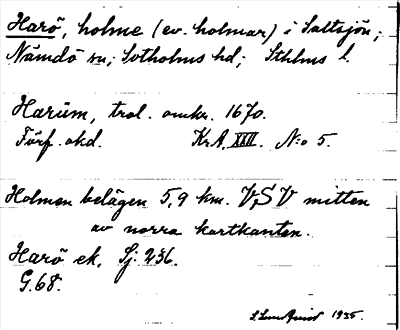 Harö, holme (ev. holmar) i Saltsjön;
Nämdö sn; Sotholms hd; Sthlms l.
Harüm, trol. omkr. 1670.
Förf. okd. Kr.A. XXII. N:o 5.
Holmen belägen 5,9 km. V,SV mitten
av norra kartkanten.
Harö ek. Sj: 236.
G.68.
1935.